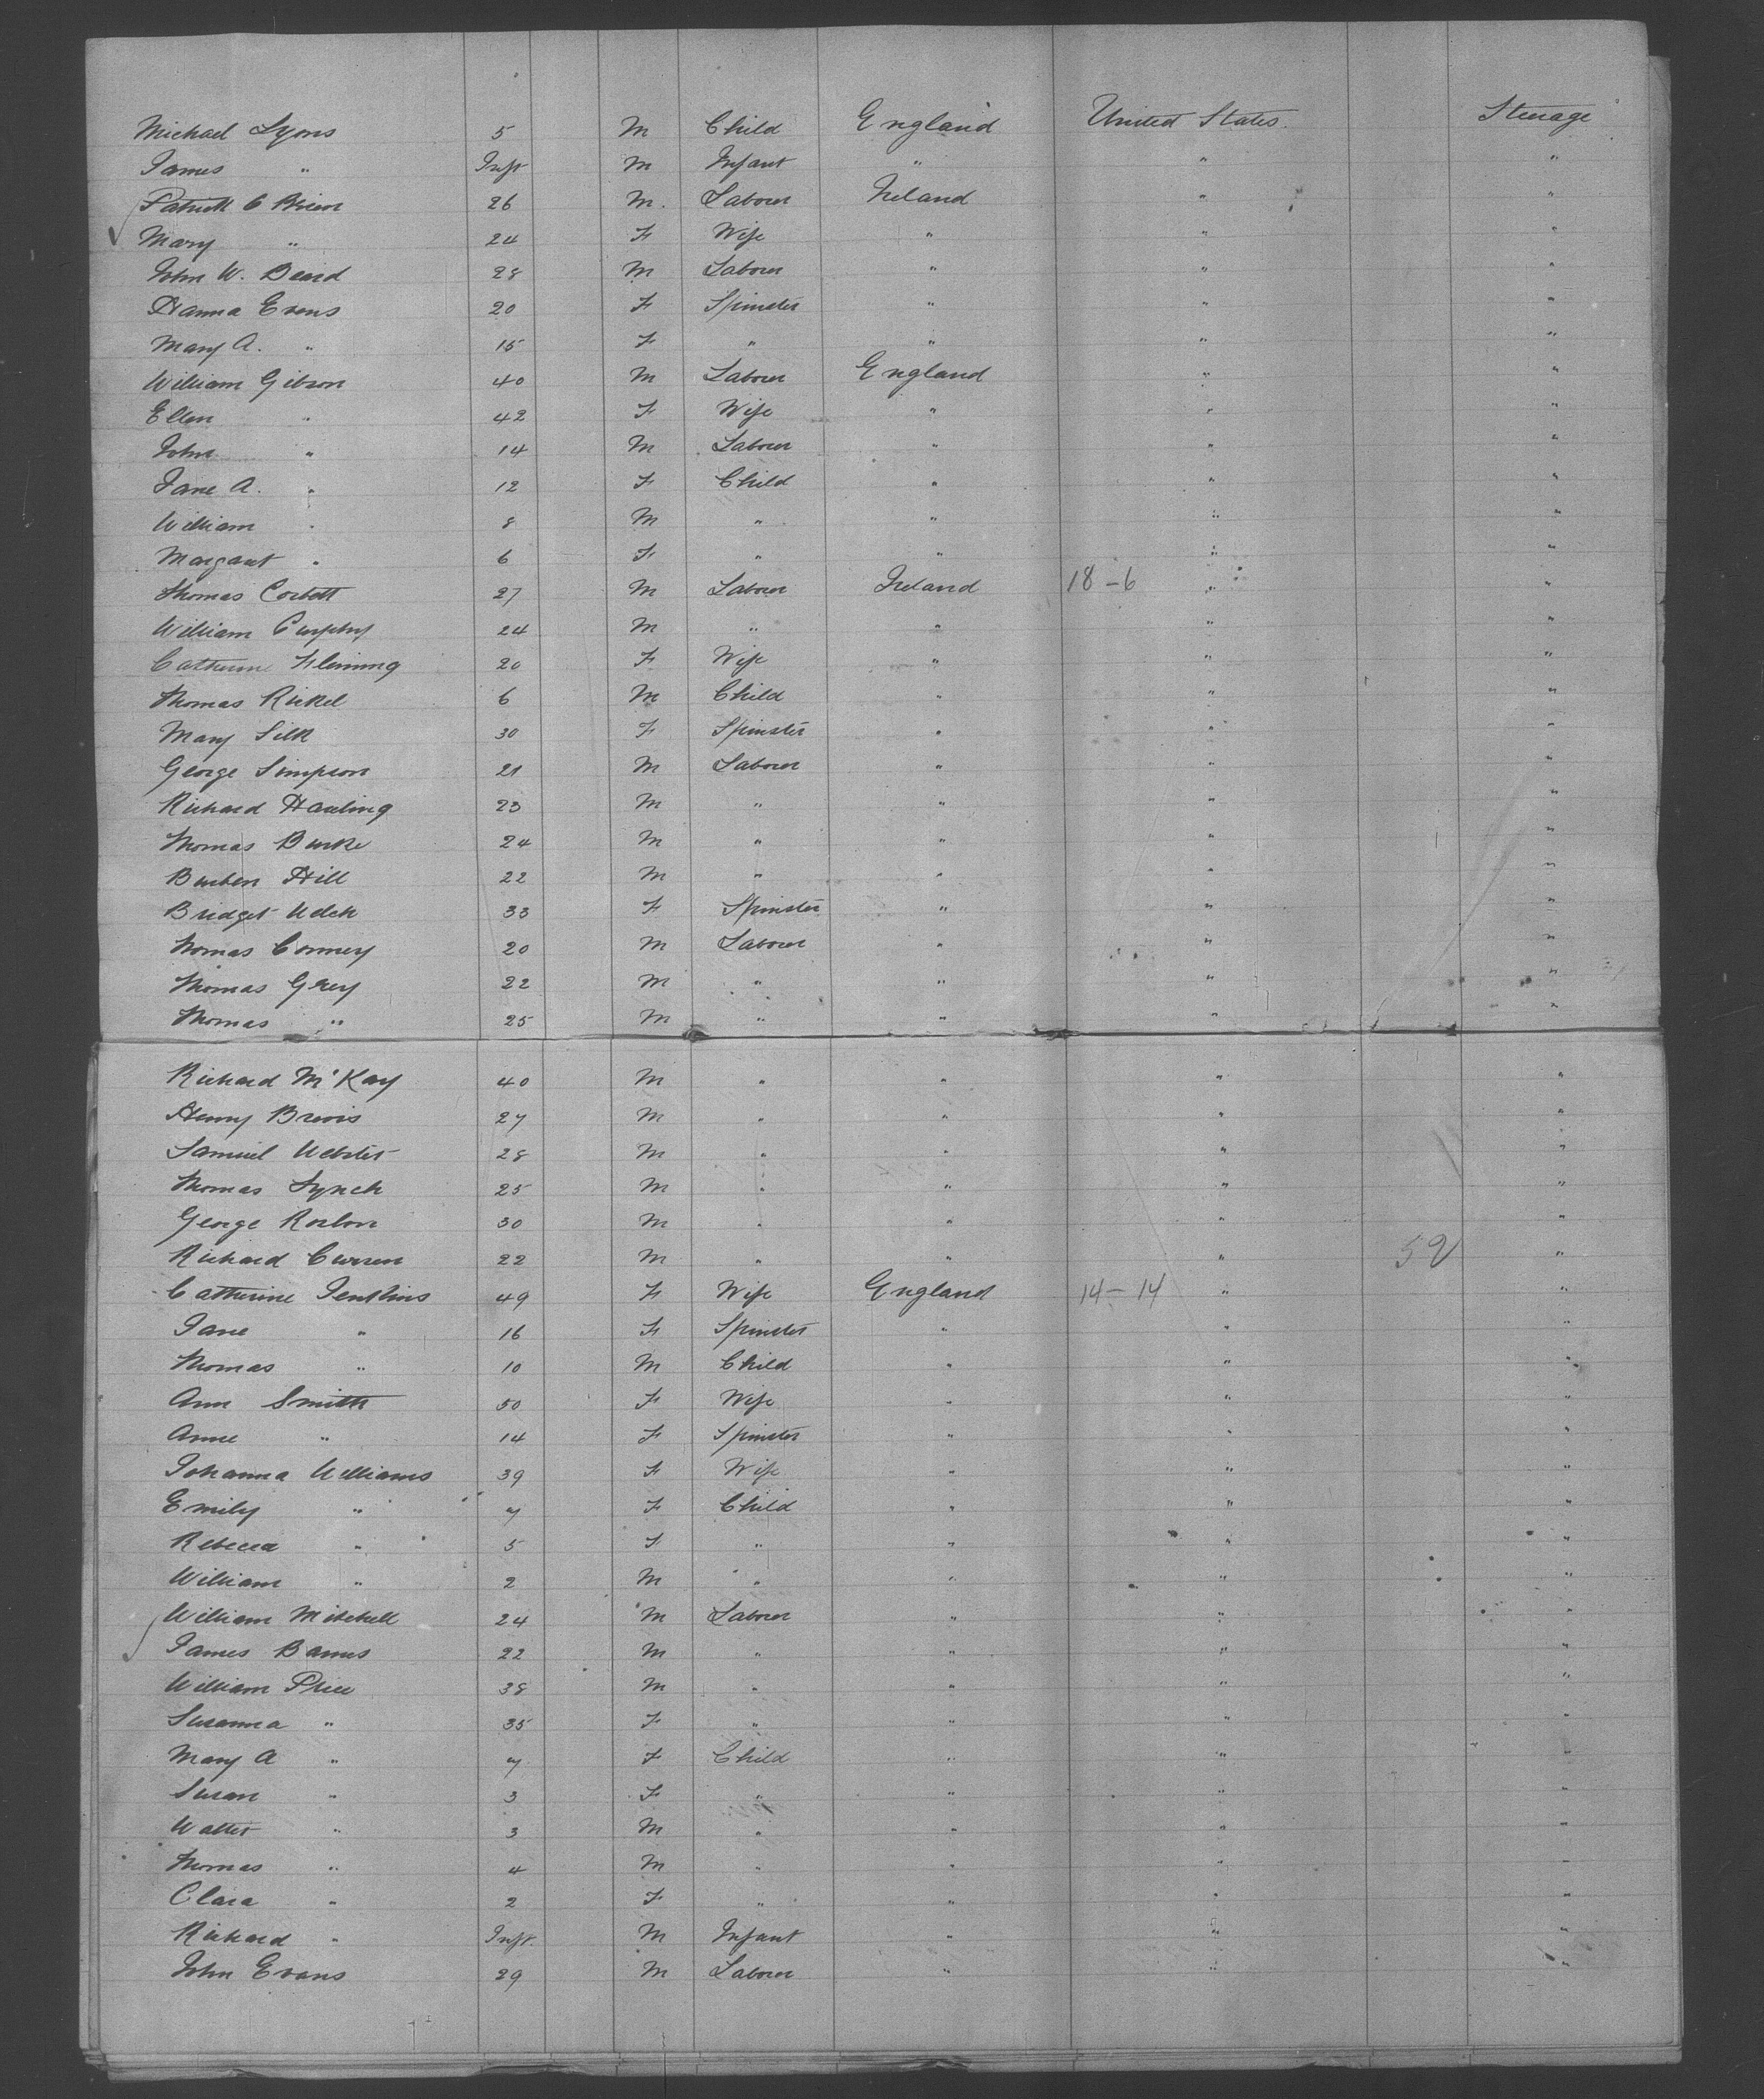 Michael Lyons 5 M Child England United States Steerage
James " Inft M Infant " " "
Patrick O Brien 26 M. Laborer Ireland " "
Mary " 24 F Wife " " "
John W. Beard 28 M Laborer " " "
Hanna Evens 20 F Spinster " " "
Mary A. " 15 F " " " "
William Gibson 40 M Laborer England " "
Ellen " 42 F Wife " " "
John " 14 M Laborer " " "
Jane A. " 12 F Child " " "
William " 8 M " " " "
Margaret " 6 F " " " "
Thomas Corbett 27 M Laborer Ireland 18-6 " "
William 24 M " " " "
Catherine Fleming 20 F Wife " " "
Thomas Rickel 6 M Child " " "
Mary Silk 30 F Spinster " " "
George Simpson 21 M Laborer " " "
Richard 23 M " " " "
Thomas Burke 24 M " " " "
Hill 22 M " " " "
Bridget Welch 33 F Spinster " " "
Thomas Connery 20 M Laborer " " "
Thomas Grey 22 M " " " "
Thomas " 25 M " " " "
Richard McKay 40 M " " " "
Henry 27 M " " " "
Samuel Webster 28 M " " " "
Thomas Lynch 25 M " " " "
George 30 M " " " "
Richard Curren 22 M " " " 52 "
Catherine Jenkins 49 F Wife England 14-14 " "
Jane " 16 F Spinster " " "
Thomas " 10 M Child " " "
Ann Smith 50 F Wife " " "
Anne " 14 F Spinster " " "
Johanna Williams 39 F Wife " " "
Emily " 7 F Child " " "
Rebecca " 5 F " " " "
William " 2 M " " " "
William Mitchell 24 M Laborer " " "
James Barnes 22 M " " " "
William Price 38 M " " " "
Susanna " 35 F " " " "
Mary A " 7 F Child " " "
Susan " 3 F " " " "
Walter " 3 M " " " "
Thomas " 4 M " " " "
Clara " 2 F " " " "
Richard " Inft. M Infant " " "
John Evans 29 M Laborer " " "